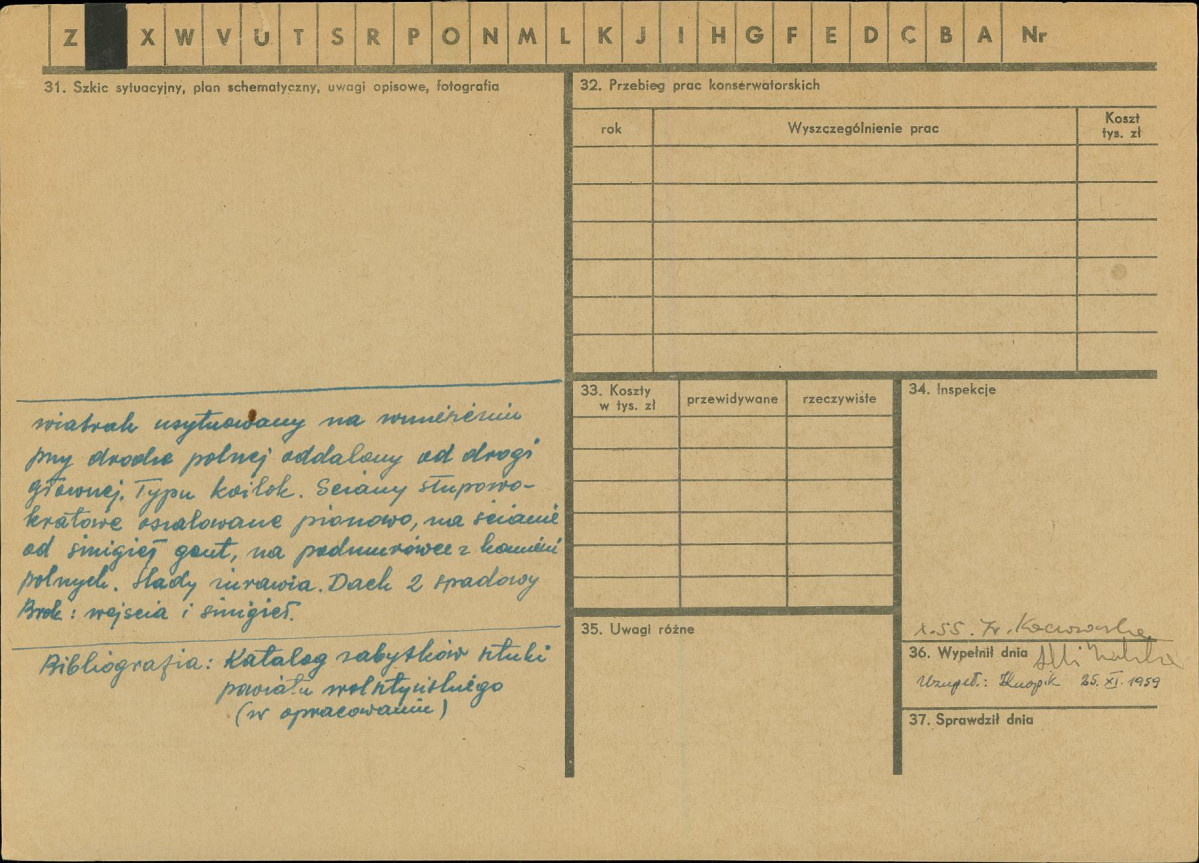 Z X W V U T S R P O N M L K J I H G F E D C B A Nr
31. Szkic sytuacyjny, plan schematyczny, uwagi opisowe, fotografia
wiatrak usytuowany na wzniesieniu
przy drodze polnej oddalony od drogi
głównej. Typu koźlak. Ściany słupowo-
kratowe oszalowane pionowo, na ścianie
od śmigieł gont, na podmurówce z kamieni
polnych. Ślady żurawia. Dach 2 spadowy
Brak: wejścia i śmigieł.
Bibliografia: Katalog zabytków sztuki
powiatu wolsztyńskiego
(w opracowaniu)
32. Przebieg prac konserwatorskich
rok Wyszczególnienie prac Koszt tys. zł
33. Koszty w tys. zł przewidywane rzeczywiste
34. Inspekcje
X.55.
35. Uwagi różne
36. Wypełnił dnia
Uzupeł.: Knopik 25. XI. 1959
37. Sprawdził dnia